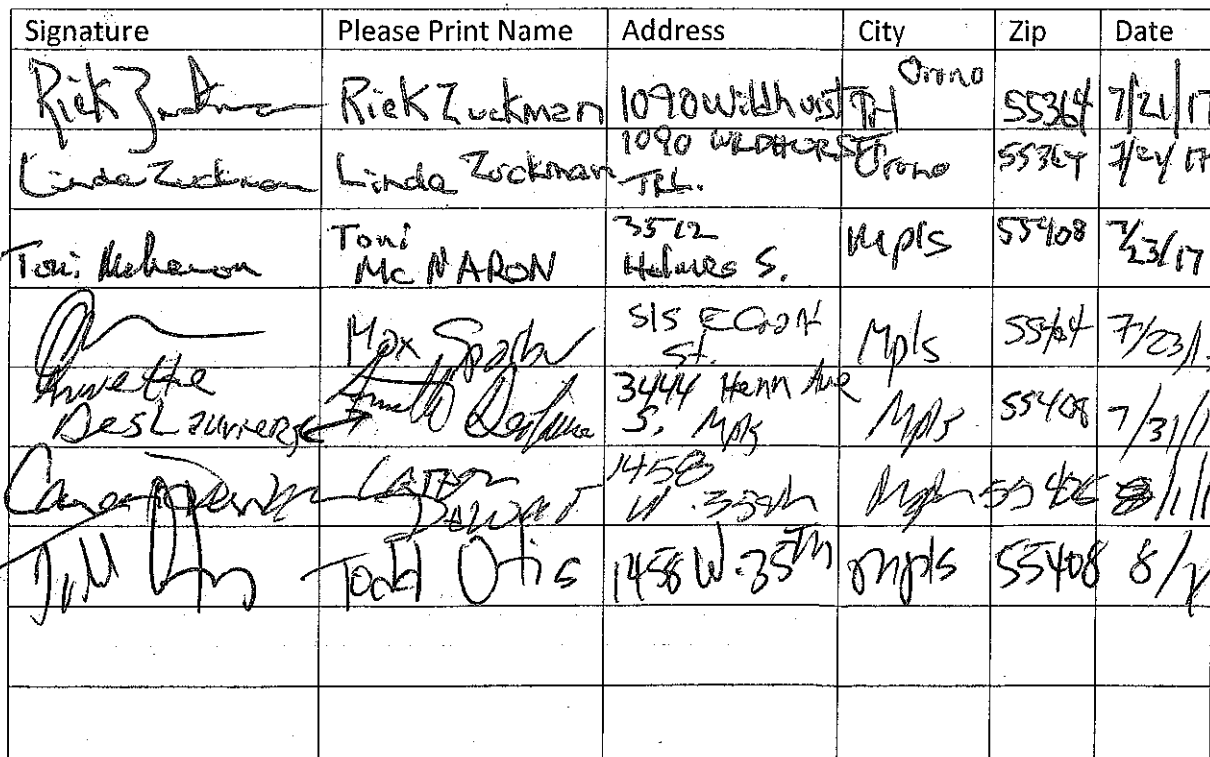 Signature Please Print Name Address City Zip Date
Rick Zuckman Rick Zuckman 1090 Wildhurst Trl Orono 55364 7/21/17
Linda Zuckman Linda Zuckman 1090 WILDHURST TRL. Orono 55364 7/21/17
Toni McNaron Toni McNARON 3512 Holmes S. Mpls 55408 7/23/17
Max St. Mpls 7/23/1
Annette DesLauriers 3444 Henn Ave S, Mpls Mpls 55408 7/31/1
1458 W. Mpls 8/1/1
Todd Otis Todd Otis 1458 W. 35th mpls 55408 8/1